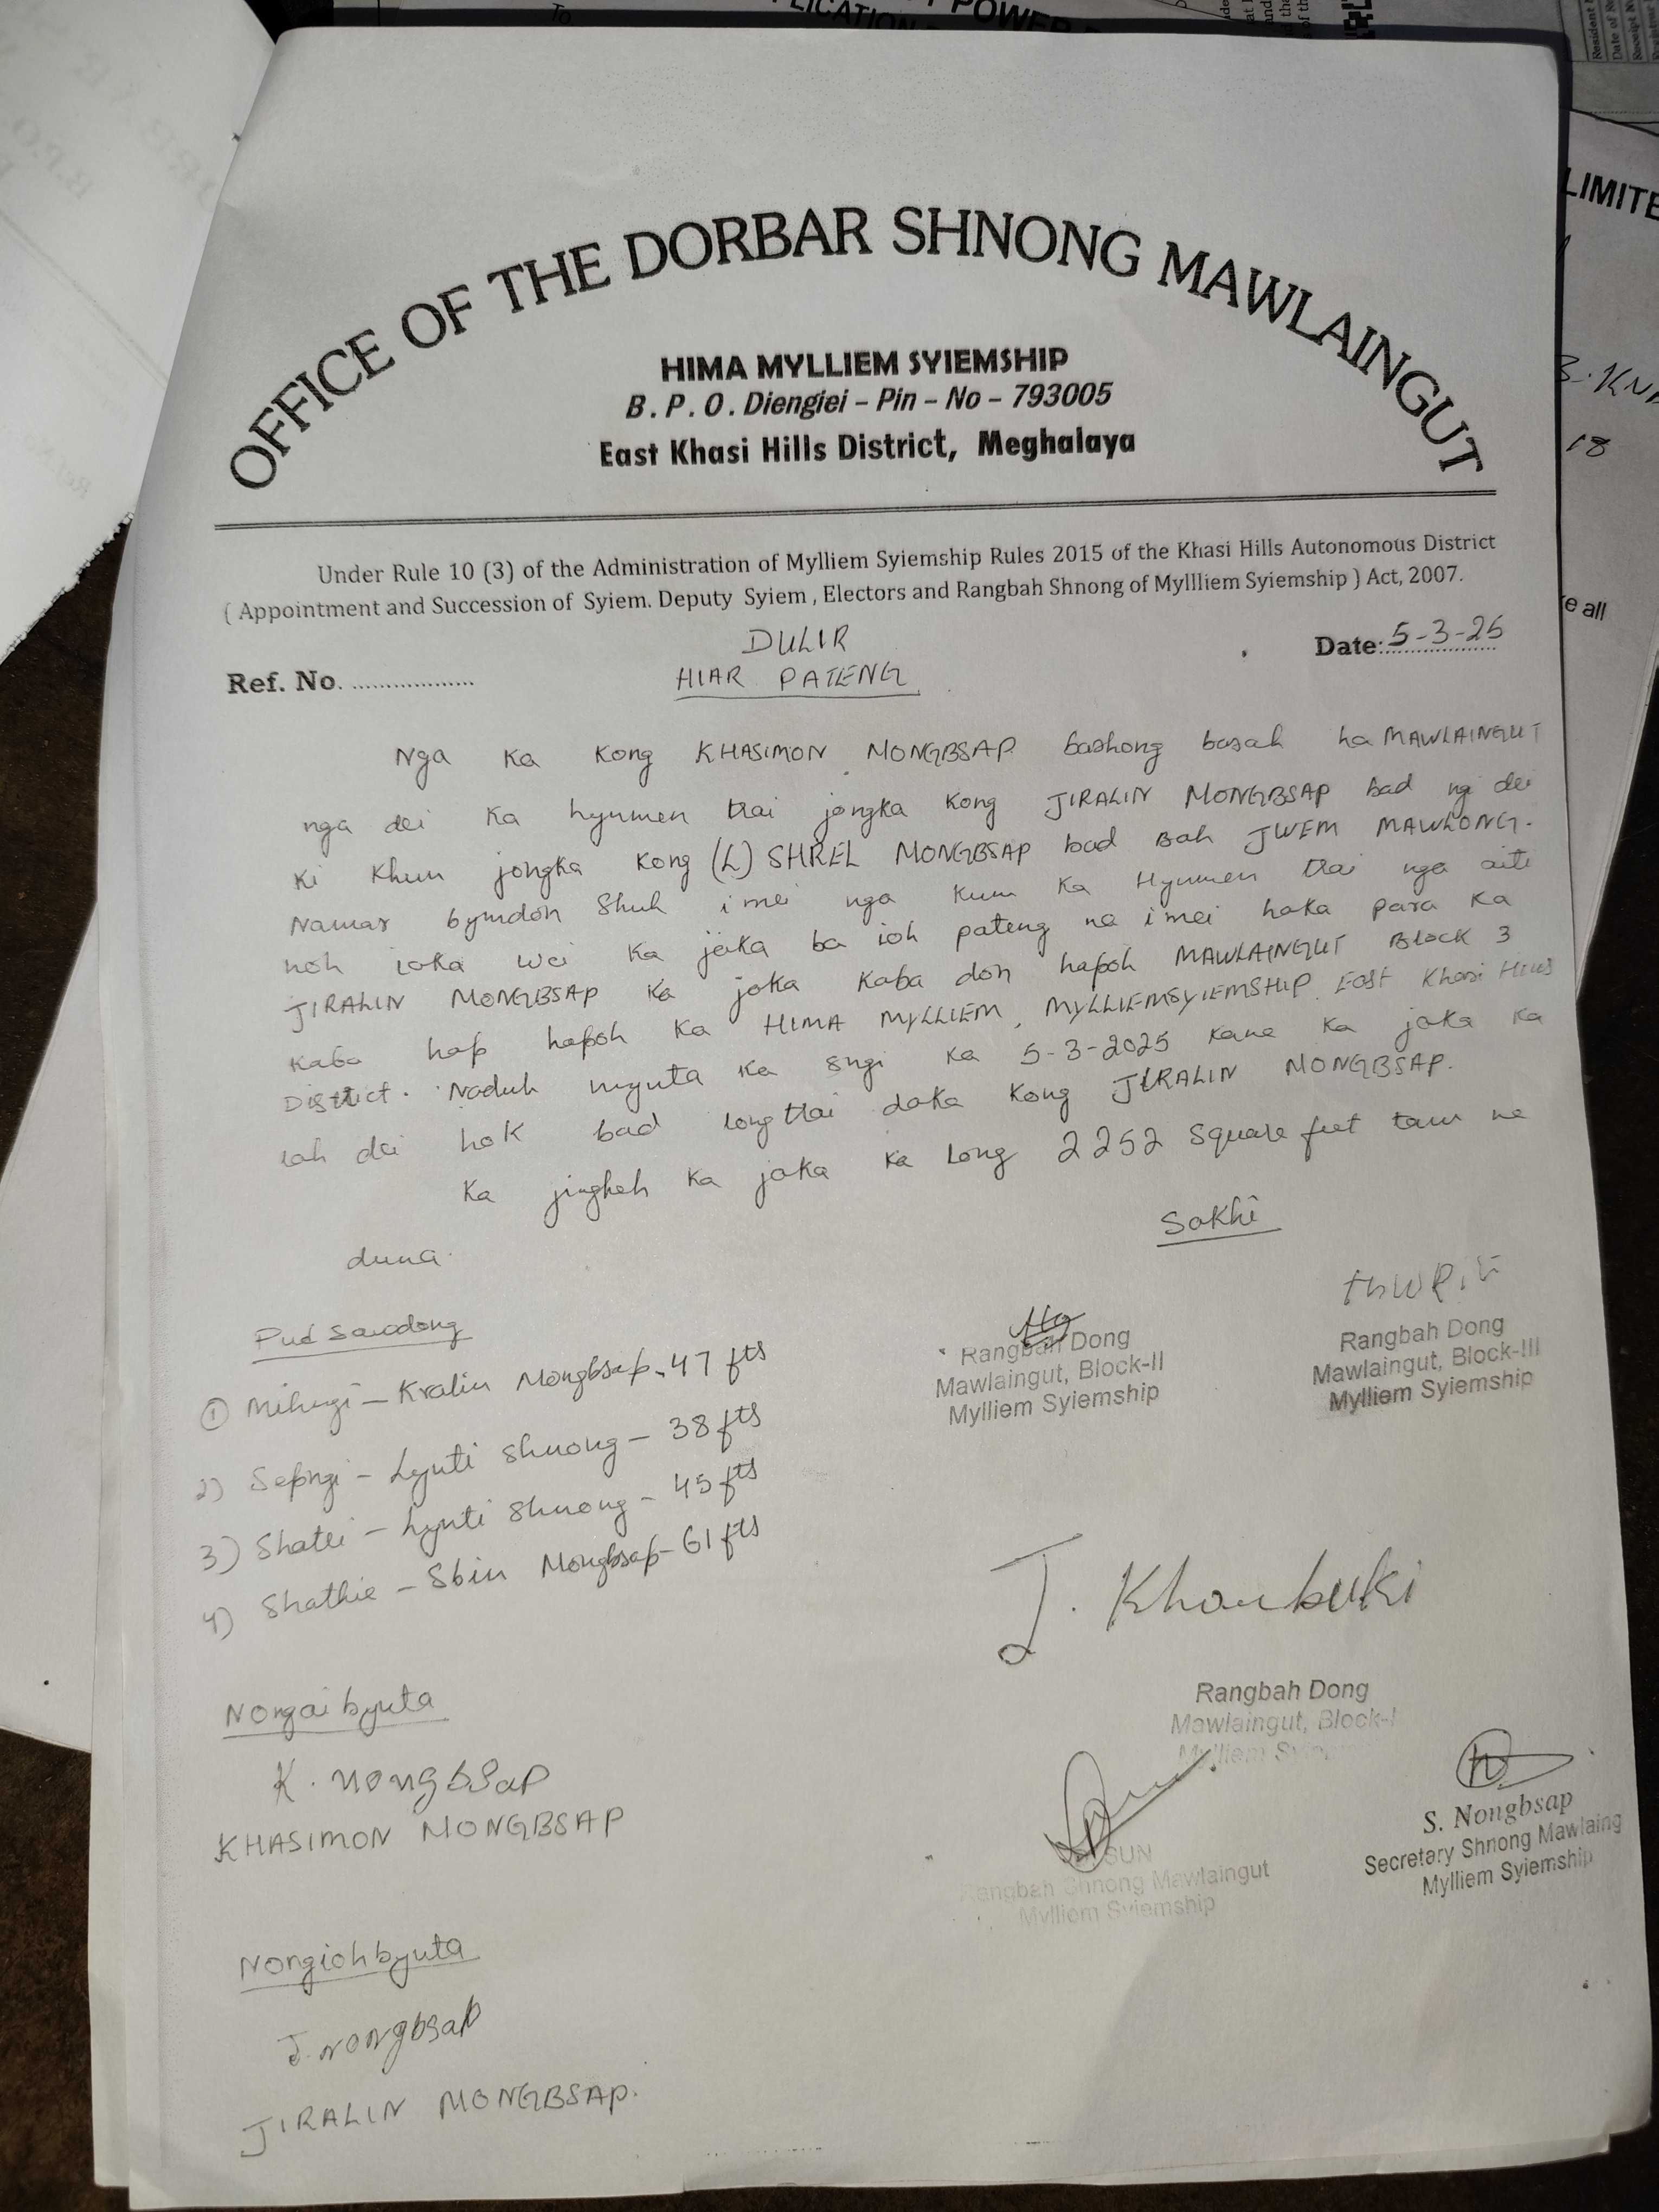 OFFICE OF THE DORBAR SHNONG MAWLAINGUT
HIMA MYLLIEM SYIEMSHIP
B. P. O. Diengiei – Pin – No – 793005
East Khasi Hills District, Meghalaya
Under Rule 10 (3) of the Administration of Mylliem Syiemship Rules 2015 of the Khasi Hills Autonomous District
( Appointment and Succession of Syiem. Deputy Syiem , Electors and Rangbah Shnong of Myllliem Syiemship ) Act, 2007.
DULIR
Date: 5-3-25
Ref. No. ..................
HIAR PATENG
Nga ka kong KHASIMON NONGBSAP bashong basah ha MAWLAINGUT
nga dei ka hynmen trai jongka kong JIRALIN NONGBSAP bad ngi dei
ki khun jongka kong (L) SHREL NONGBSAP bad Bah JWEM MAWLONG.
Namar bymdon shuh i mei nga kum ka Hynmen trai nga aiti
noh iaka wei ka jaka ba ioh pateng na i mei haka para ka
JIRALIN NONGBSAP ka jaka kaba don hapoh MAWLAINGUT Block 3
kaba hap hapoh ka HIMA MYLLIEM, MYLLIEMSYIEMSHIP East Khasi Hills
District. Naduh mynta ka sngi ka 5-3-2025 kane ka jaka ka
lah dei hok bad longtrai daka kong JIRALIN NONGBSAP.
Ka jingheh ka jaka ka long 2252 Square feet tam ne
duna.
Sakhi
Pud Sawdong
① Mihngi – Kralin Nongbsap - 47 fts
2) Sepngi – Lynti Shnong – 38 fts
3) Shatei – Lynti Shnong – 45 fts
4) Shathie – Sbin Nongbsap – 61 fts
Rangbah Dong
Mawlaingut, Block-II
Mylliem Syiemship
Rangbah Dong
Mawlaingut, Block-III
Mylliem Syiemship
J. Kharbuki
Rangbah Dong
Mawlaingut, Block-I
Mylliem
Nongai bynta
K. nongbsap
KHASIMON NONGBSAP
SUN
Rangbah Shnong Mawlaingut
Mylliem Syiemship
S. Nongbsap
Secretary Shnong Mawlaing
Mylliem Syiemship
Nongioh bynta
J. nongbsap
JIRALIN NONGBSAP.